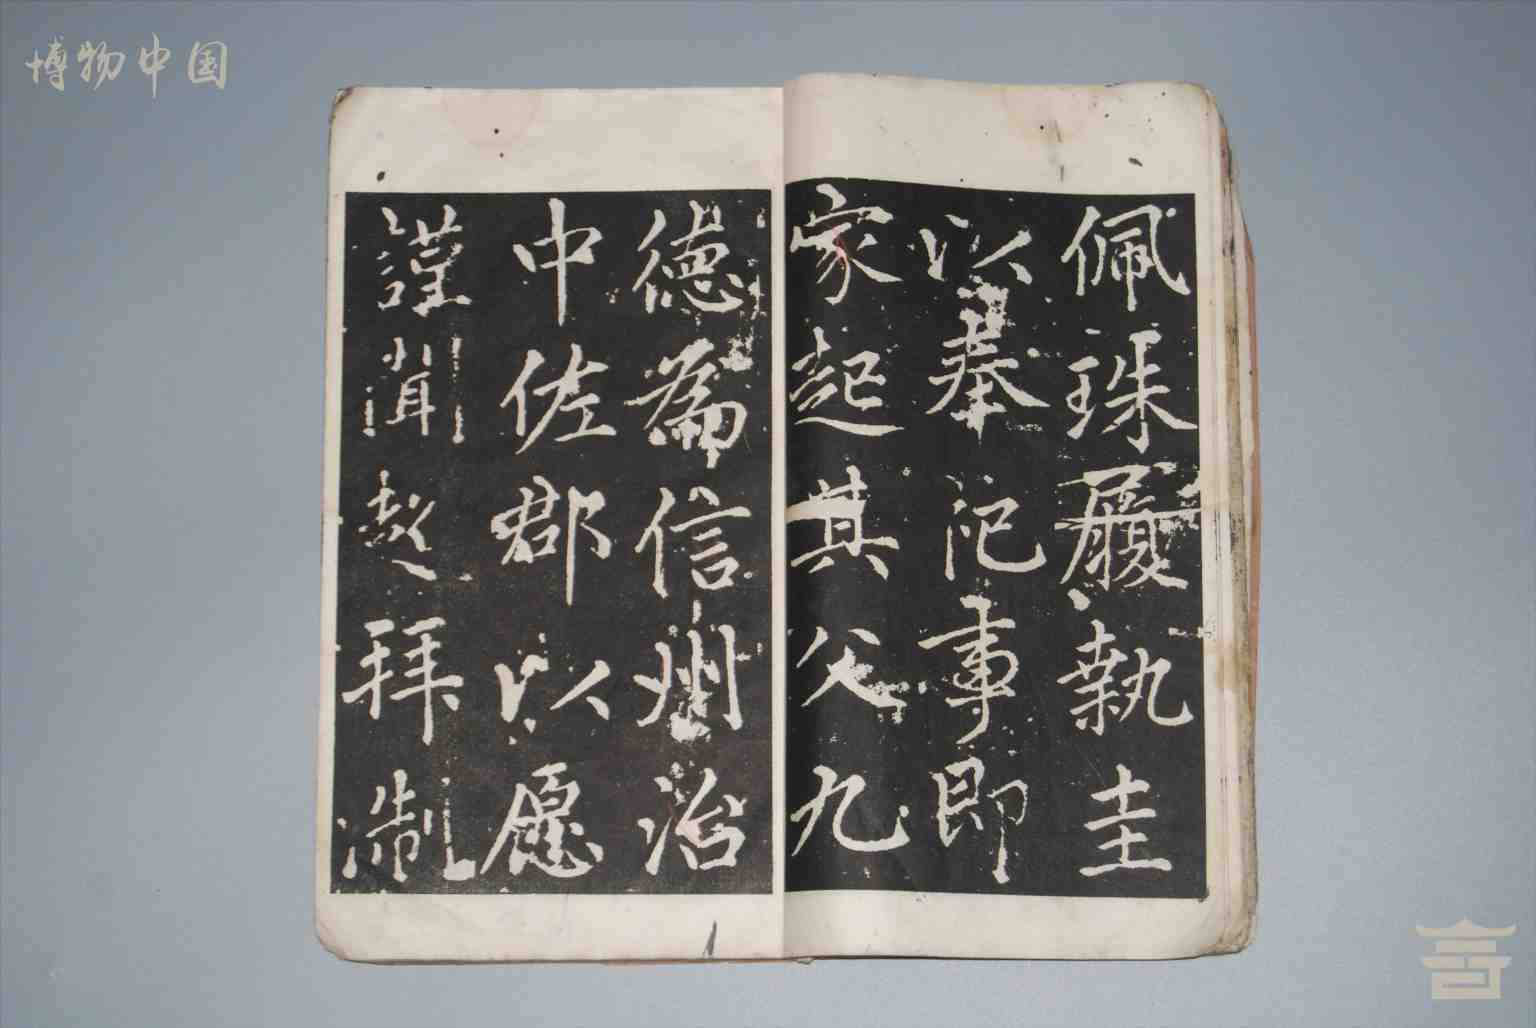 博物中国
佩珠履執圭
以奉祀事即
家起其父九
德為信州治
中佐郡以愿
謹聞超拜淛